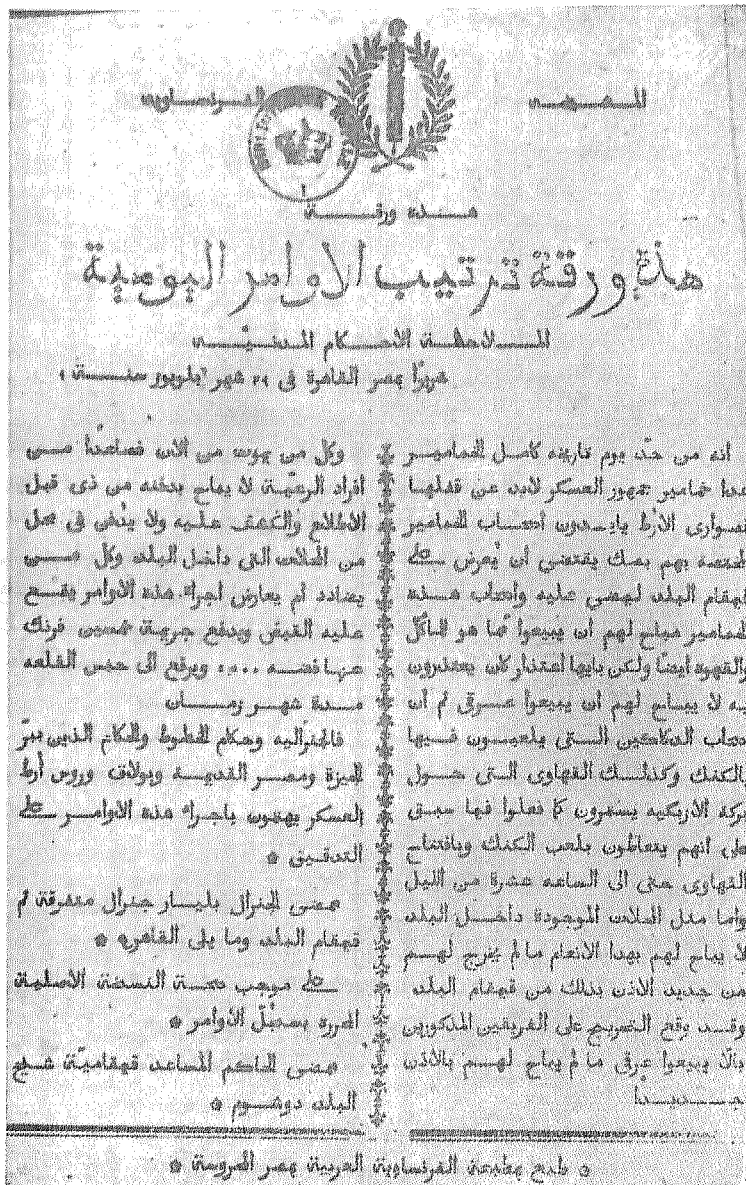 للمشيخه الفرنساويه
هذه ورقة
هذه ورقة ترتيب الاوامر اليومية
الملاحظة الاحكام المدنيّة
بمصر القاهرة فى شهر سنة
أنه من حدّ يوم تاريخه كامل الخمامير
عدا خمامير جمهور العسكر لابد عن قفلها
الأرط أصحاب الخمامير
المختصه بهم بصك يقتضى أن يُعرض على
قيمقام البلد ليمضى عليه وأصحاب هذه
الخمامير مباح لهم أن يبيعوا ما هو للمأكل
والقهوه ايضًا ولكن بايها اعتذار كان يعتذرون
به لا يباح لهم ان يبيعوا عرقى ثم أن
أصحاب الدكاكين التى يلعبون فيها
بالكنك وكذلك القهاوى التى حول
بركة الازبكيه يستمرون كما فعلوا فيما سبق
على انهم يتعاطون بلعب الكنك وبافتتاح
القهاوى حتى الى الساعه عشرة من الليل
واما مثل المحلات الموجودة داخل البلد
لا يباح لهم بهذا الانعام ما لم يخرج لهم
من جديد الاذن بذلك من قيمقام البلد
وقد وقع التصريح على الفريقين المذكورين
بألا يبيعوا عرقى ما لم يباح لهم بالاذن
جديدًا
وكل من يموت من الآن فصاعدًا من
أفراد الرعيّة لا يباح بدفنه من ذى قبل
الاطلاع والكشف عليه ولا يُدفن فى محل
من المحلات التى داخل البلد وكل من
يضادد أم يعارض اجراء هذه الأوامر يقع
عليه القبض ويدفع جريمة خمسين فرنك
عنها فضه ويرفع الى حبس القلعه
مدة شهر زمان
فالجنراليه وحكام الخطوط والحكام الذين ببرّ
الجيزة ومصر القديمة وبولاق وروس أرط
العسكر يهتمون باجراء هذه الأوامر على
التدقيق *
ممضى الجنرال بليار جنرال متفرقة ثم
قيمقام البلد وما يلى القاهره *
على موجب صحة النسخة الأصلية
المحرره بسجلّ الأوامر *
ممضى الحاكم المساعد قيمقاميّة شيخ
البلد دوهوم *
* طبع بمطبعة الفرنساوية العربية بمصر المحروسة *